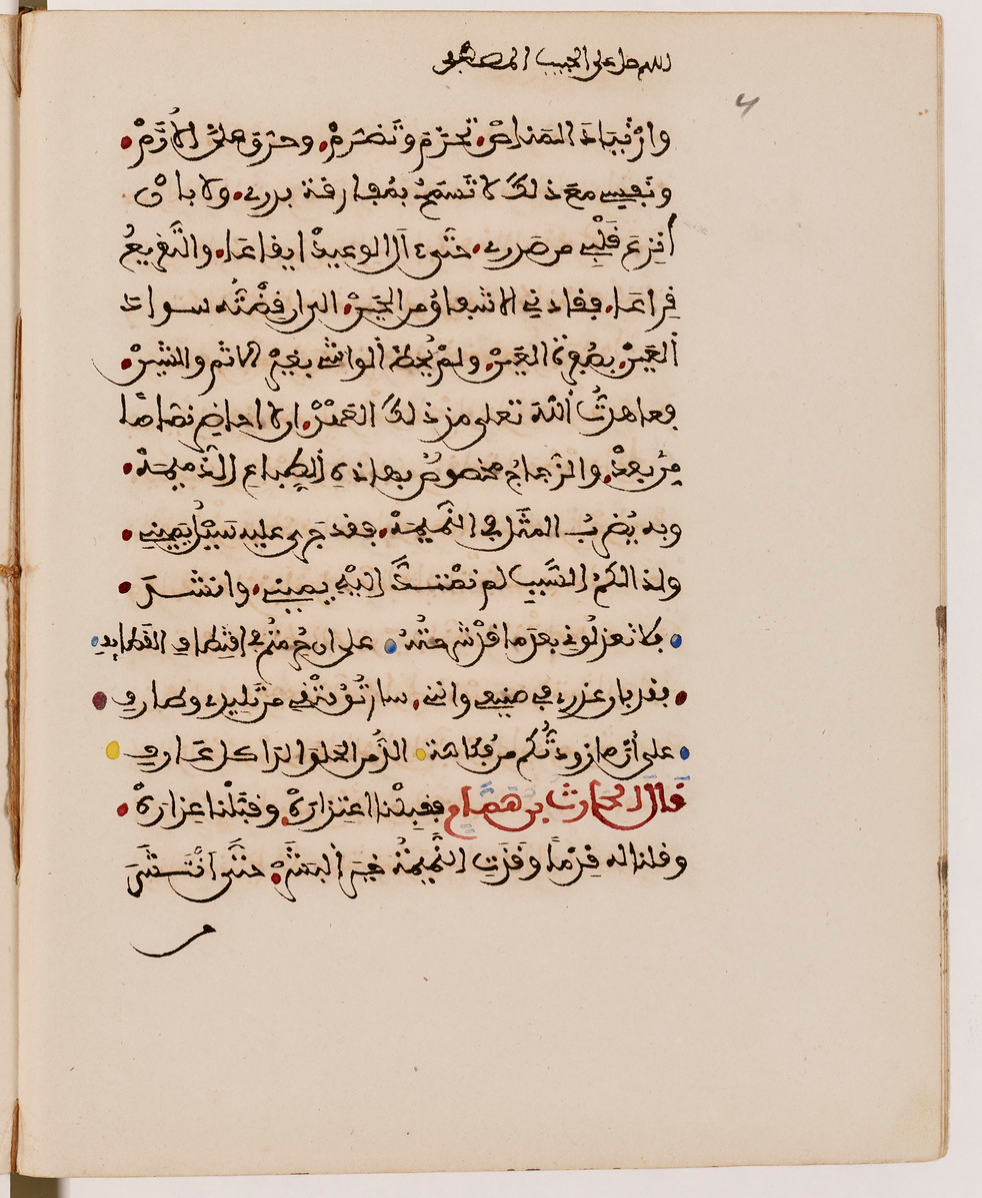 اللهم صل على الحبيب المصطفى
تحتدم وتضرم وحرق على الأرم
ونفسي مع ذلك لا تسمح بمفارقة بدري ولا بان
أنزع قلبي من صدري حتى ءال الوعيد ايقاعا والتقريع
قراعا فقادني الاشفاق من الحين الى ان قضته سواد
العين بصفرة العين ولم يحظ الواشي بغير الاثم والشين
فعاهدت الله تعلى مذ ذلك العهد ان لا احاضر نماما
من بعد والزجاج مخصوص بهاذه الطباع الذميمة
وبه يضرب المثل في النميمة فقد جرى عليه سيل يميني
ولذالكم السبب لم تمتد اليه يميني وانشد
فلا تعذلوني بعد ما قد شرحته على ان حرمتم بي اقتطاف القطايف
فقد بان عذري في صنيعي وانني سارتق فتقي من تليدي وطارفي
على أن ما زودتكم من فكاهة الذ من الحلوا لدا كل عارف
قال الحارث بن همام فقبلنا اعتذاره وقبلنا عذاره
وقلنا له قدما وقذت النميمة خير البشر حتى انتشر